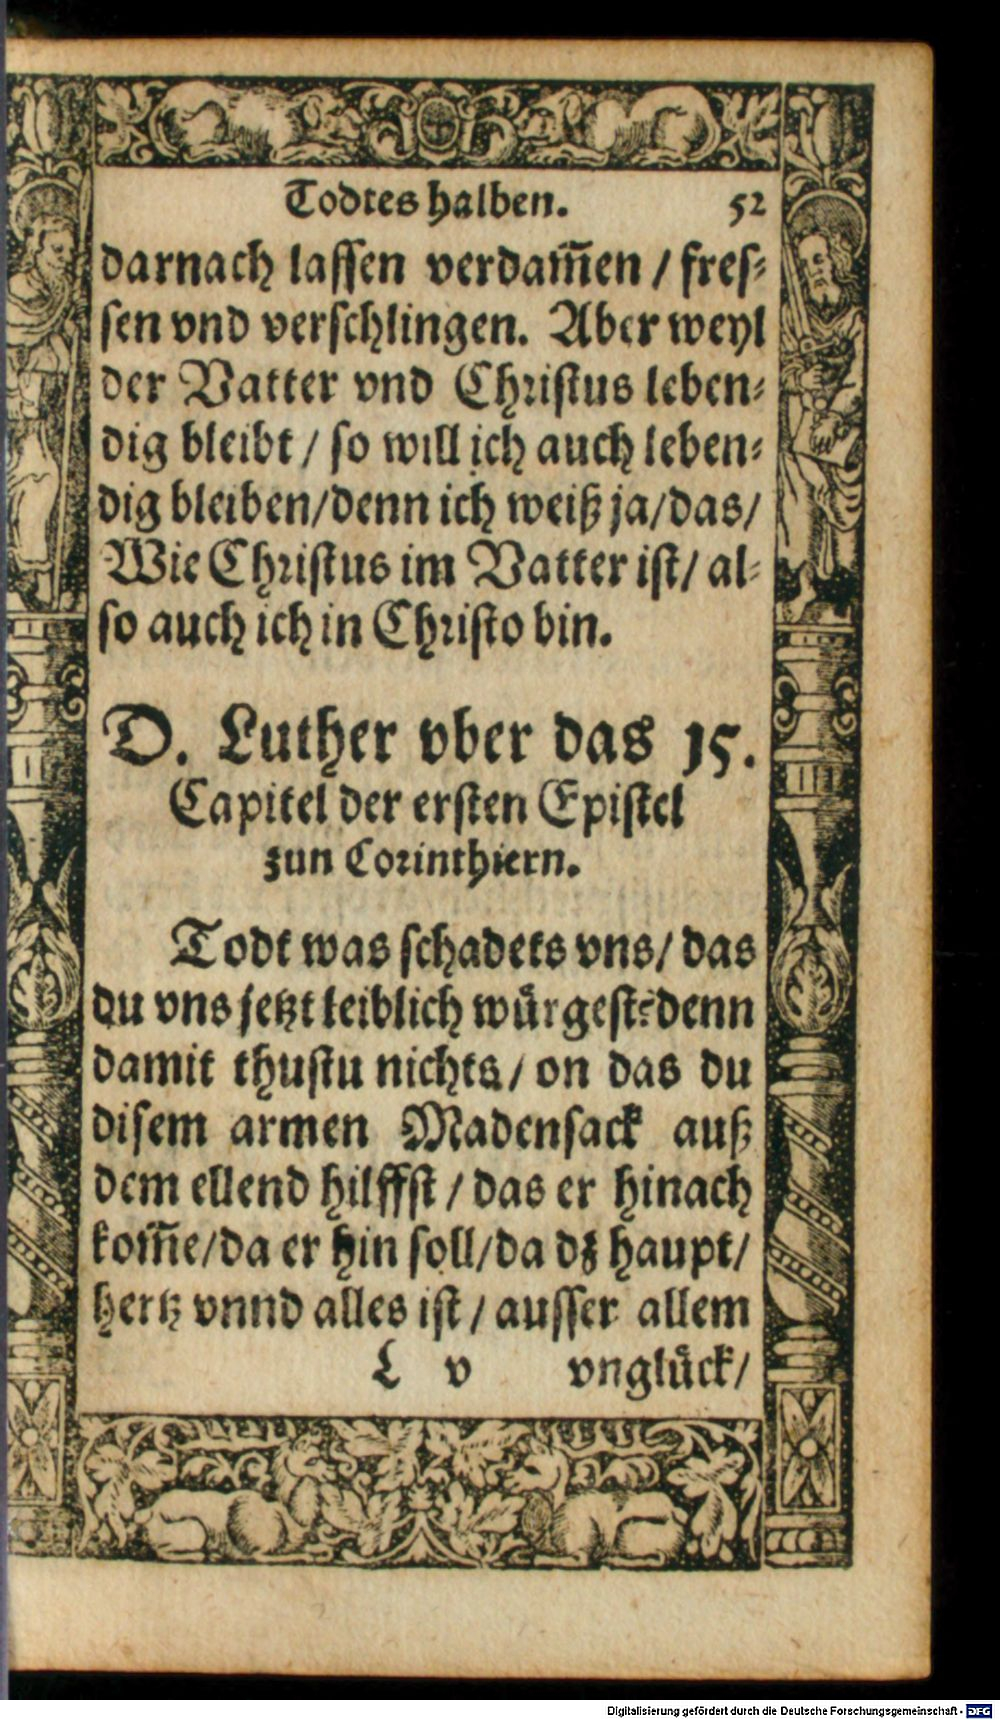 Todtes halben. 52
darnach lassen verdam̃en / fres⸗
sen vnd verschlingen. Aber weyl
der Vatter vnd Christus leben⸗
dig bleibt / so will ich auch leben⸗
dig bleiben/denn ich weiß ja/das/
Wie Christus im Vatter ist/ al⸗
so auch ich in Christo bin.
D. Luther vber das 15.
Capitel der ersten Epistel
zun Corinthiern.
Todt was schadets vns/ das
du vns jetzt leiblich wuͤrgest? denn
damit thustu nichts / on das du
disem armen Madensack auß
dem ellend hilffst / das er hinach
kom̃e/da er hin soll/da dz haupt/
hertz vnnd alles ist / ausser allem
L v vngluͤck/
Digitalisierung gefördert durch die Deutsche Forschungsgemeinschaft - DFG